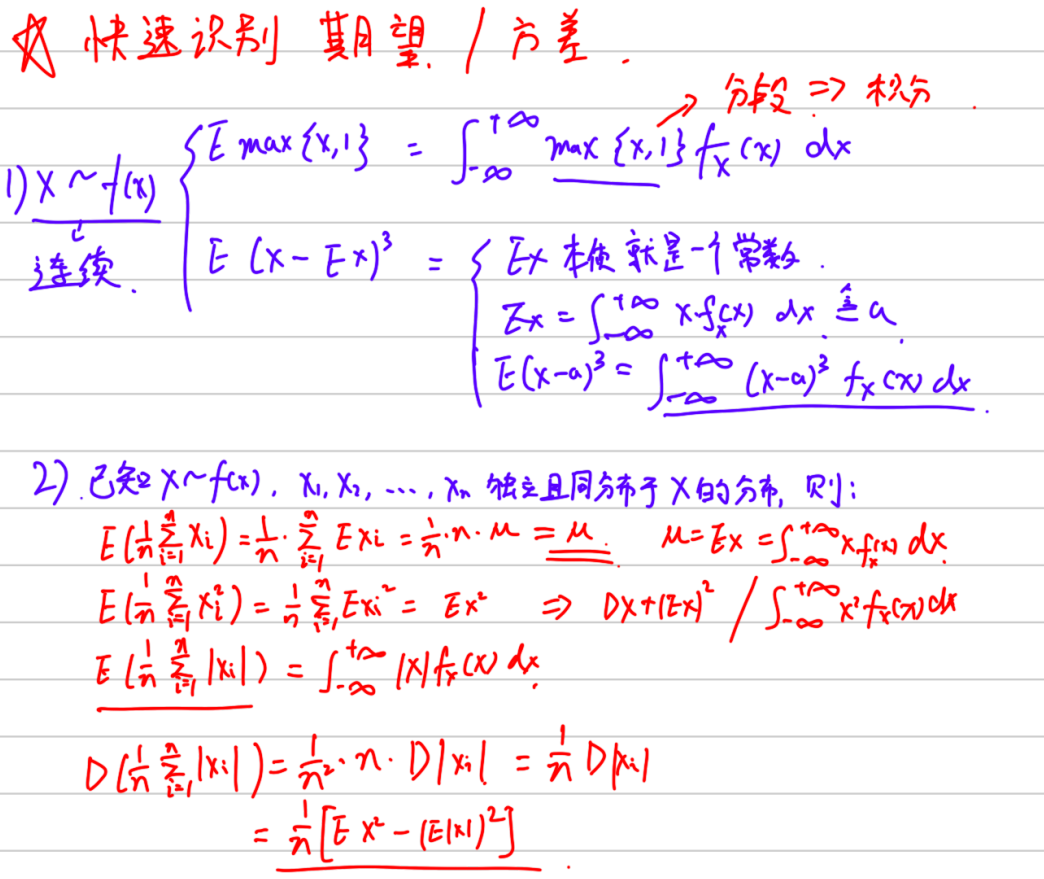 ☆ 快速识别 期望 / 方差 .
→ 分段 ⇒ 积分 .
1) X ~ f(x) { E max{X,1} = ∫_{-∞}^{+∞} max{x,1} f_X(x) dx
↓
连续. E (X - EX)³ = { EX 本质就是一个常数 .
EX = ∫_{-∞}^{+∞} x f_X(x) dx ≜ a.
E(X-a)³ = ∫_{-∞}^{+∞} (x-a)³ f_X(x) dx .
2). 已知 X~f(x), X₁, X₂, …, Xₙ 独立且同分布于 X 的分布, 则:
E(1/n ∑_{i=1}^{n} Xi) = 1/n · ∑_{i=1}^{n} EXi = 1/n · n · μ = μ. μ = EX = ∫_{-∞}^{+∞} x f_X(x) dx.
E(1/n ∑_{i=1}^{n} Xi²) = 1/n ∑_{i=1}^{n} EXi² = EX² ⇒ DX+(EX)² / ∫_{-∞}^{+∞} x² f_X(x) dx
E(1/n ∑_{i=1}^{n} |Xi|) = ∫_{-∞}^{+∞} |x| f_X(x) dx.
D(1/n ∑_{i=1}^{n} |Xi|) = 1/n² · n · D|Xi| = 1/n D|Xi|
= 1/n [EX² - (E|X|)²] .